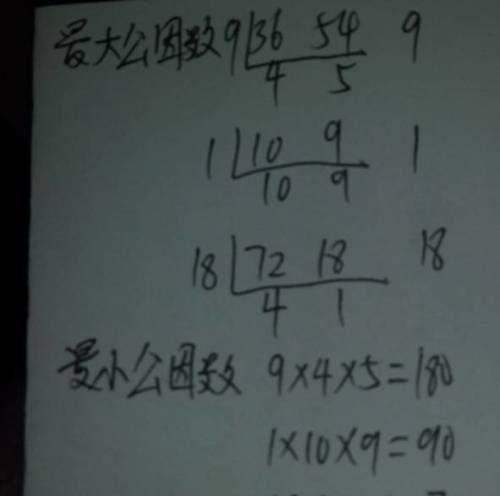 最大公因数 9 36 54 9
4 5
1 10 9 1
10 9
18 72 18 18
4 1
最小公因数 9×4×5=180
1×10×9=90